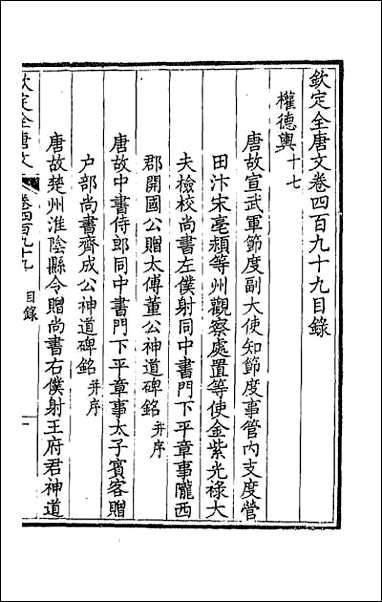 欽定全唐文卷四百九十九目錄
權德輿十七
唐故宣武軍節度副大使知節度事管內支度營
田汴宋亳潁等州觀察處置等使金紫光祿大
夫檢校尚書左僕射同中書門下平章事隴西
郡開國公贈太傅董公神道碑銘并序
唐故中書侍郎同中書門下平章事太子賓客贈
户部尚書齊成公神道碑銘并序
唐故楚州淮陰縣令贈尚書右僕射王府君神道
欽定全唐文
卷四百九十九
目錄
一